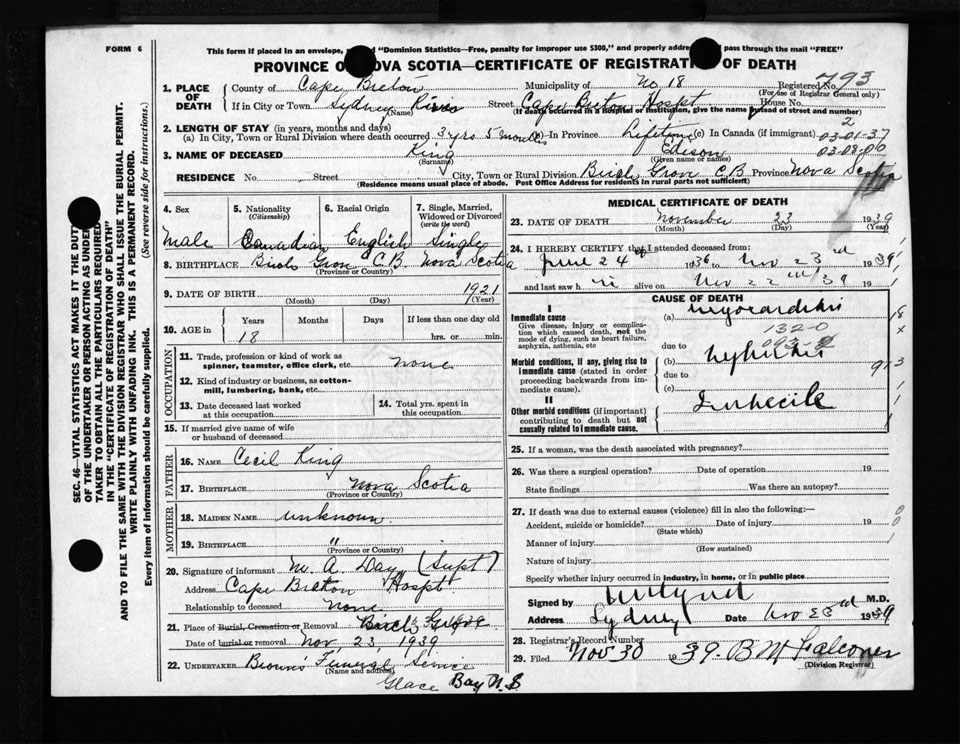 FORM 6
This form if placed in an envelope, "Dominion Statistics—Free, penalty for improper use $300," and properly addre pass through the mail "FREE"
PROVINCE O OVA SCOTIA—CERTIFICATE OF REGISTRATI OF DEATH
1. PLACE OF DEATH County of Cape Breton Municipality of No 18 Registered No. 793
(For use of Registrar General only)
If in City or Town Sydney River Street Cape Breton Hospt House No.
(Name) (If death occurred in a hospital or institution, give the name instead of street and number)
2. LENGTH OF STAY (in years, months and days)
(a) In City, Town or Rural Division where death occurred 3 yrs 5 months (b) In Province Lifetime (c) In Canada (if immigrant) 2
03-01-37
3. NAME OF DECEASED King Edison 03-08-00
(Surname) (Given name or names)
RESIDENCE No. Street City, Town or Rural Division Birch Grove C.B Province Nova Scotia
(Residence means usual place of abode. Post Office Address for residents in rural parts not sufficient)
4. Sex 5. Nationality (Citizenship) 6. Racial Origin 7. Single, Married, Widowed or Divorced (write the word)
Male Canadian English Single
8. BIRTHPLACE Birch Grove C.B Nova Scotia
(Province or Country)
9. DATE OF BIRTH 1921
(Month) (Day) (Year)
10. AGE in Years Months Days If less than one day old
18 hrs. or min.
OCCUPATION
11. Trade, profession or kind of work as spinner, teamster, office clerk, etc. none
12. Kind of industry or business, as cotton-mill, lumbering, bank, etc.
13. Date deceased last worked at this occupation
14. Total yrs. spent in this occupation
15. If married give name of wife or husband of deceased
FATHER
16. NAME Cecil King
17. BIRTHPLACE Nova Scotia
(Province or Country)
MOTHER
18. MAIDEN NAME unknown
19. BIRTHPLACE "
(Province or Country)
20. Signature of informant M. A. Day (Supt)
Address Cape Breton Hospt
Relationship to deceased none
21. Place of Burial, Cremation or Removal Birch Grove
Date of burial or removal Nov, 23, 1939
22. UNDERTAKER Browns Funeral Service
(Name and address)
Glace Bay N.S
MEDICAL CERTIFICATE OF DEATH
23. DATE OF DEATH November 23 1939
(Month) (Day) (Year)
24. I HEREBY CERTIFY that I attended deceased from:
June 24 1936 to Nov 23rd 1939
and last saw h im alive on Nov 22 /39 19
CAUSE OF DEATH
I
Immediate cause (a) Myocarditis
Give disease, injury or complication which caused death, not the mode of dying, such as heart failure, asphyxia, asthenia, etc
132-0
due to 093-2
Morbid conditions, if any, giving rise to immediate cause (stated in order proceeding backwards from immediate cause). (b) Nephritis
due to
(c)
II
Other morbid conditions (if important) contributing to death but not causally related to immediate cause. Imbecile
25. If a woman, was the death associated with pregnancy?
26. Was there a surgical operation? Date of operation 19
State findings Was there an autopsy?
27. If death was due to external causes (violence) fill in also the following:—
Accident, suicide or homicide? Date of injury 19
(State which)
Manner of injury
(How sustained)
Nature of injury
Specify whether injury occurred in industry, in home, or in public place
Signed by M.D.
Address Sydney Date Nov 23rd 1939
28. Registrar's Record Number
29. Filed Nov 30 1939. B M Falconer
(Division Registrar)
SEC. 46—VITAL STATISTICS ACT MAKES IT THE DUT
OF THE UNDERTAKER OR PERSON ACTING AS UNDER
TAKER TO OBTAIN ALL THE PARTICULARS REQUIRED
IN THE "CERTIFICATE OF REGISTRATION OF DEATH"
AND TO FILE THE SAME WITH THE DIVISION REGISTRAR WHO SHALL ISSUE THE BURIAL PERMIT.
WRITE PLAINLY WITH UNFADING INK. THIS IS A PERMANENT RECORD.
Every item of information should be carefully supplied. (See reverse side for instructions.)